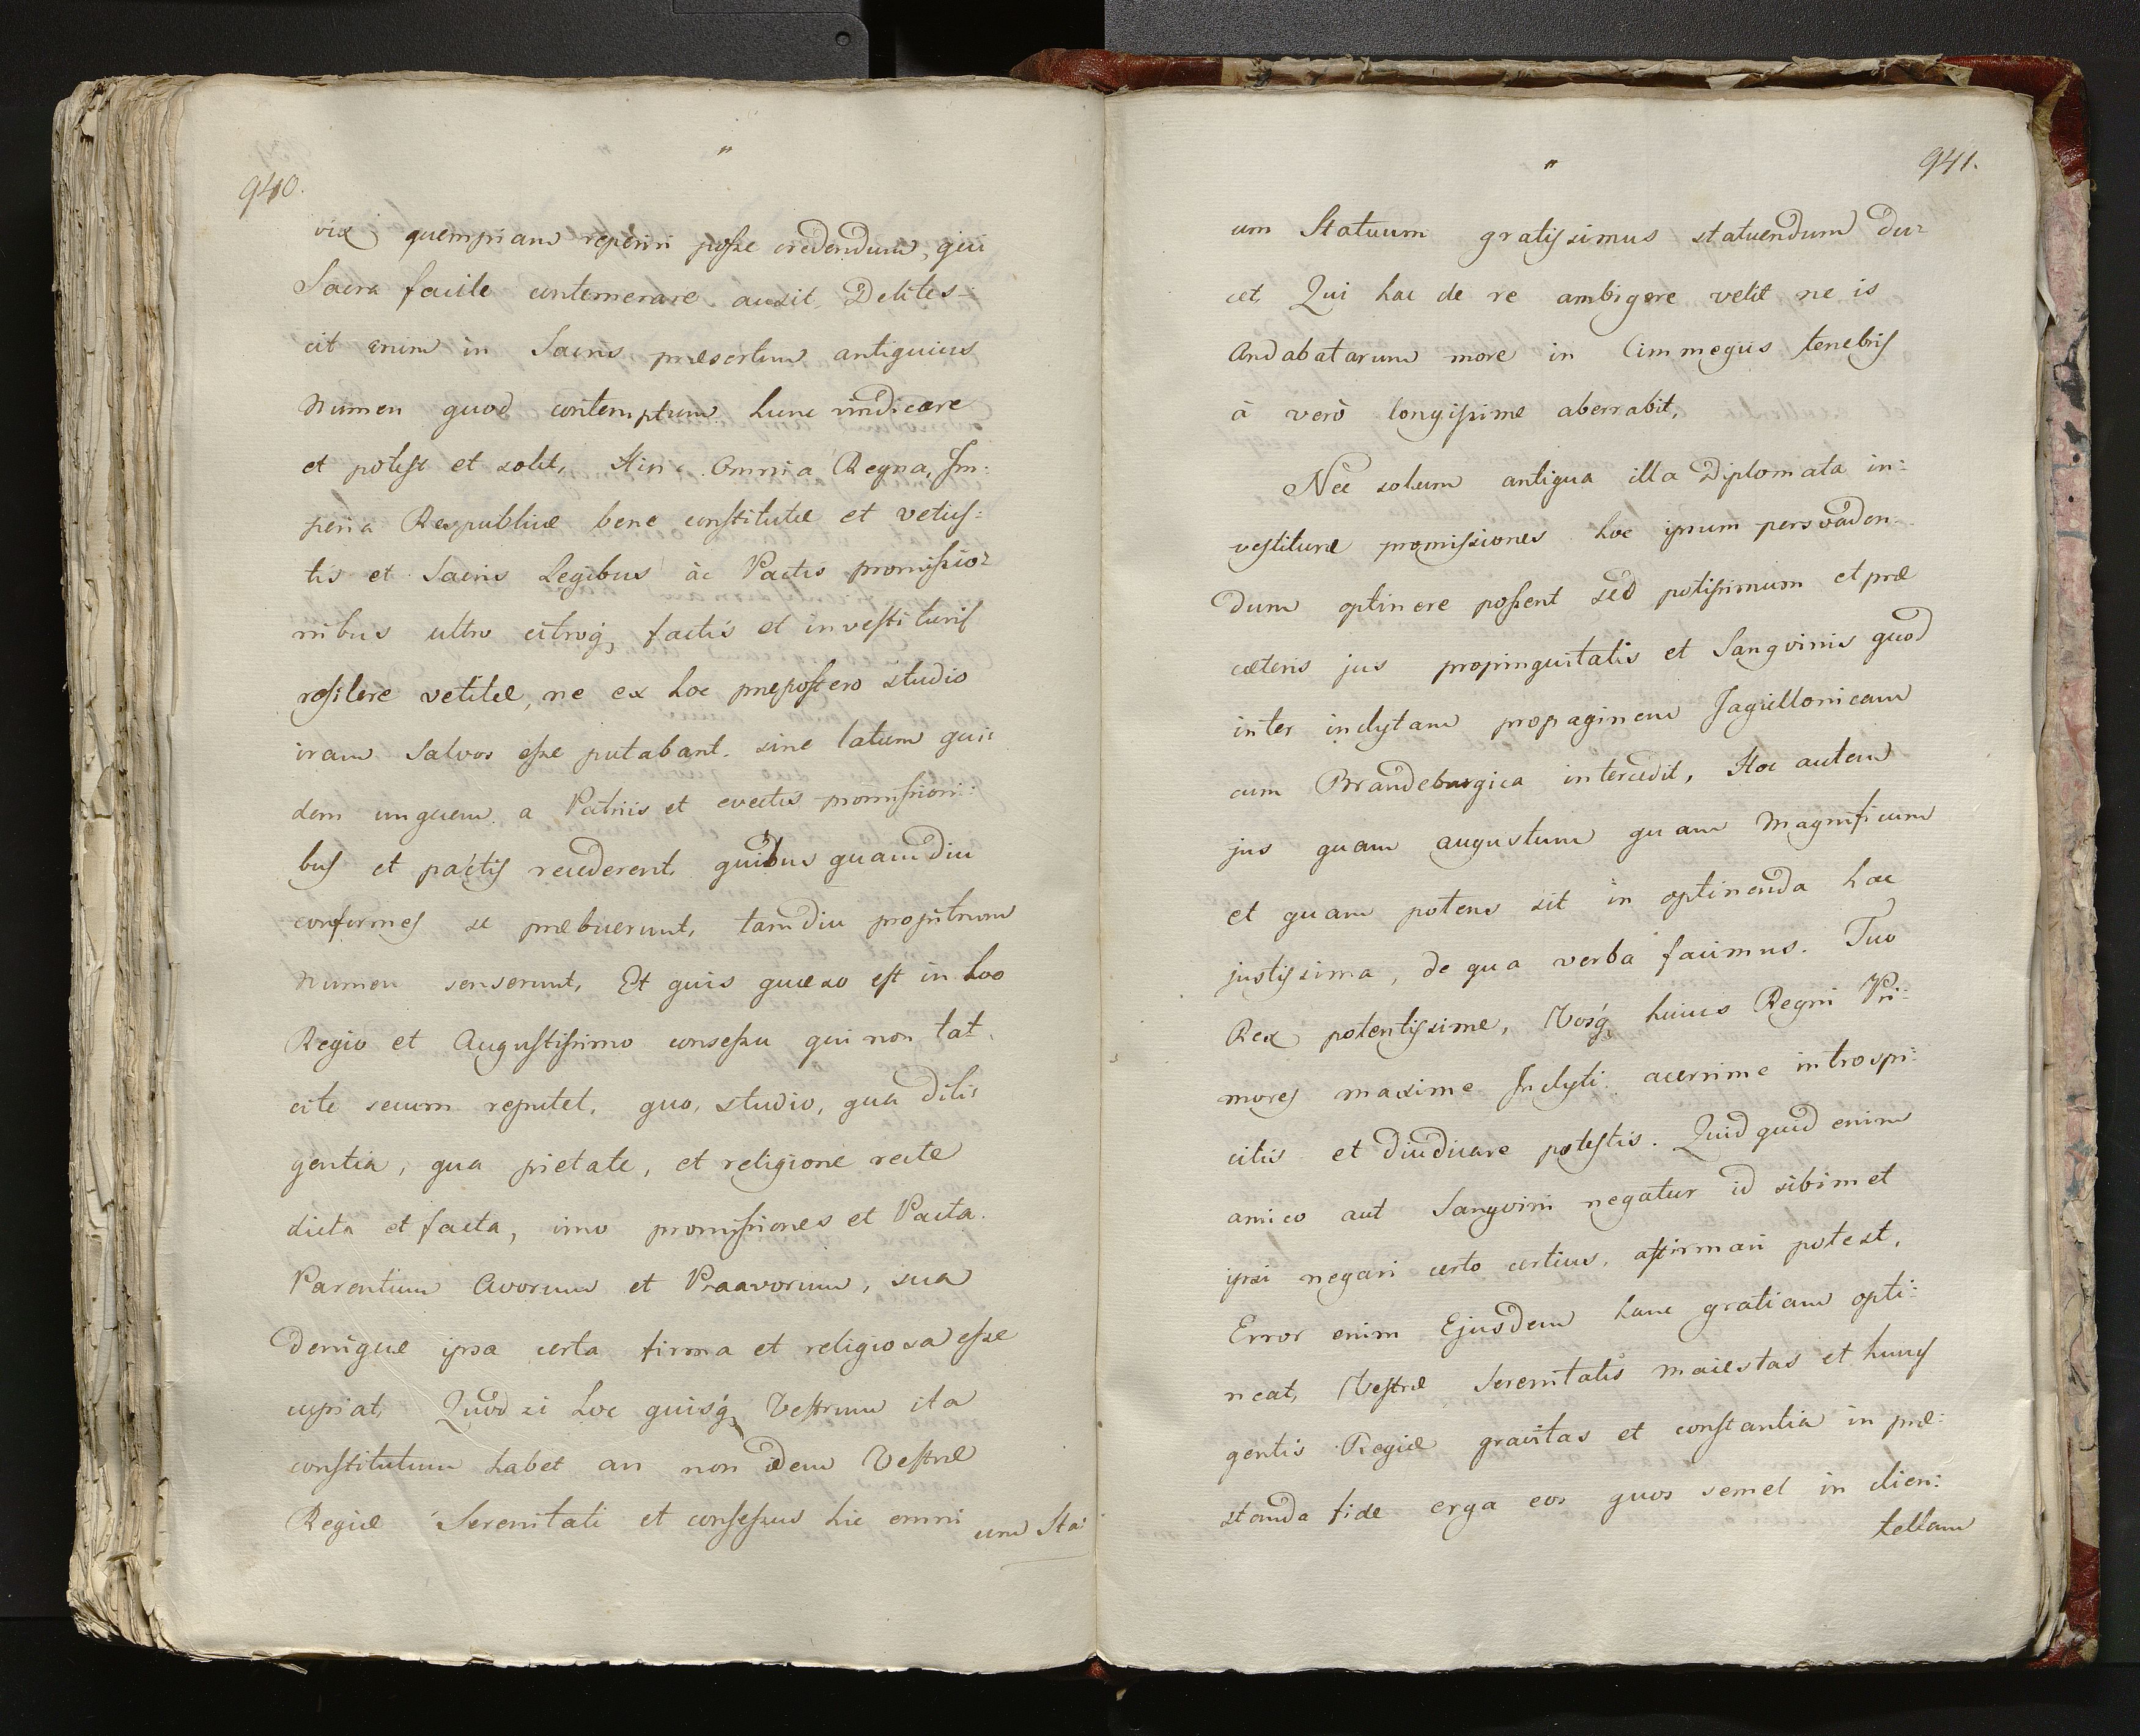 940.
"
vix quempiam reperiri posse credendum, qui
Sacra facile contemerare ausit, Delites=
cit enim in Sacris præsertim antiquius
Numen quod contemptum hunc vindicare
et potest et solet, Hinc Omnia Regna, Im:
peria Respublicæ bene constitutæ et vetus:
tis et Sacris Legibus ac Pactis promissio=
nibus ultro citroq₃ factis et investituris
resilere vetitæ, ne ex hoc præpostero studio
iram Salvos esse putabant. sine latum qui=
dem unquem a Patriis et evectis promissioni:
bus et pactis recederent, quibus quamdiu
conformes se præbuerunt, tamdiu propitium
Numen senserunt, Et quis quæso est in hoo
Regio et Augustissimo consessu qui non tat.
cite secum reputet, quo, studio, qua dili=
gentia, qua pietate, et religione recte
dicta et facta, imo promissiones et Pacta.
Parentium Avorum et Praavorum, sua
denique ipsa certa firma et religiosa esse
cupiat, Quod si hoc quisq₃ Vestrum ita
constitutum habet an non idem Vestræ
Regiæ Serenitati et consessus hic omni
um Sta:
941.
"
um Statuum gratissimus statuendum du=
cet, Qui hac de re ambigere velit ne is
Andabatarum more in Cimmegiis tenebris
à verò longissime aberrabit,
Nec solum antiqua illa Diplomata in:
vestituræ promissiones hoc ipsum persvaden:
dum optinere possent sed potissimum et præ
cæteris jus propinquitatis et Sangvinis quod
inter inclytam propaginem Jagiellonicam
cum Brandeburgica intercedit, Hoc autem
jus quam augustum quam Magnificum
et quam potens sit in optinenda hac
justissima, de qua verba facimus. Tuo
Rex potentissime, Vosq₃ huius Regni Pri:
mores maxime Inclyti acerrime introspi:
citis et diudicare potestis. Quid quid enim
amico aut Sangvini negatur id sibimet
ipsi negari certo certius, affirmari potest,
Error enim Ejusdem hanc gratiam opti:
neat, Vestræ Serenitatis maiestas et huius
gentis Regiæ gravitas et constantia in præ:
standa fide erga eos quos semel in clien:
tellam